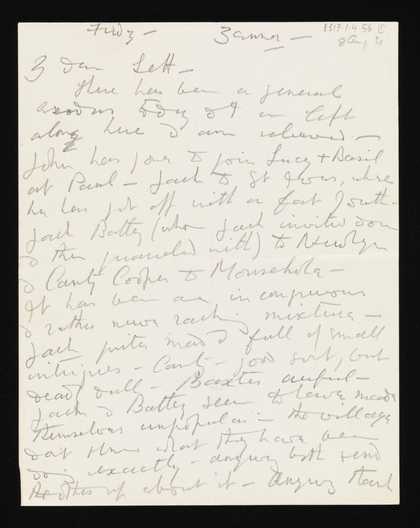 Friday - Zennor -
Dear Lett -
There has been a general
exodus today & I am left
along here & am relieved -
John has gone to join Lucy + Basil
at Paul - Jack to St Ives, where
he has got off with a fast youth -
Jack Battey (whom Jack invited down
& then quarreled with) to Newlyn
& Canty Cooper to Mousehole -
It has been an incongruous
& rather nerve racking mixture -
Jack quite mad & full of small
intrigues - Canty - good sort, but
deadly dull - Baxter awful -
Jack & Battey seem to have made
themselves unpopular in the village
dont know what they have been
doing exactly - anyway both send
up about it - Anyway thank